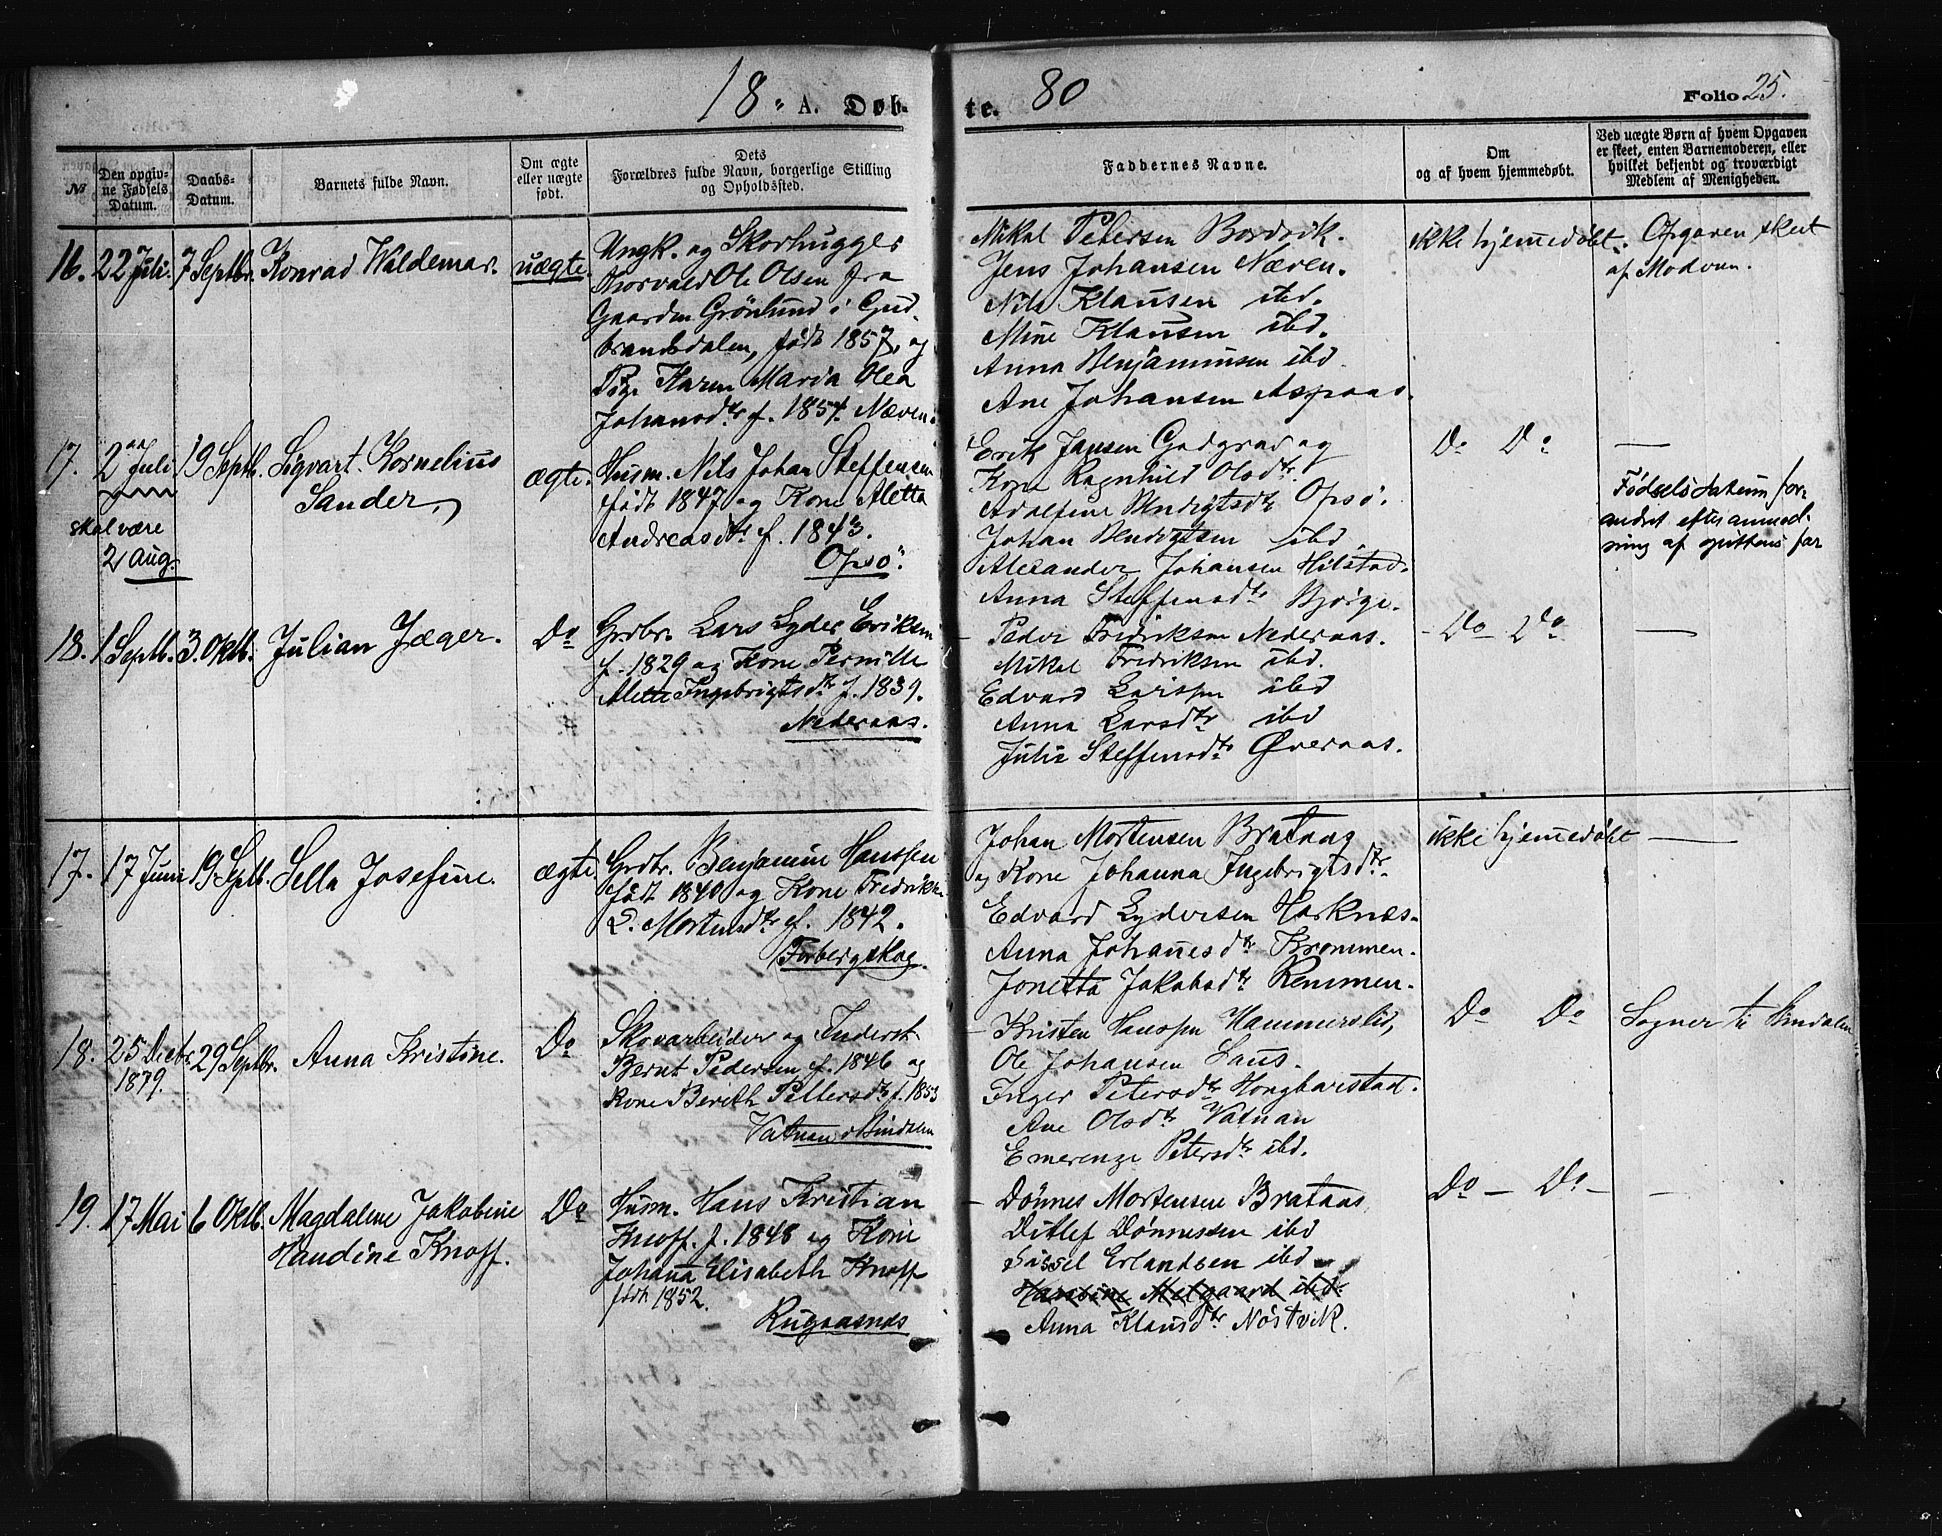 18 A. Døb- te. 80 Folio 25.
No
Den opgiv-
ne Fødsels
Datum.
Daabs-
Datum.
Barnets fulde Navn.
Om ægte
eller uægte
født.
Dets
Forældres fulde Navn, borgerlige Stilling
og Opholdssted.
Faddernes Navne.
Om
og af hvem hjemmedøbt.
Ved uægte Børn af hvem Opgaven
er skeet, enten Barnemoderen, eller
hvilket bekjendt og troværdigt
Medlem af Menigheden.
16. 22 Juli. 7 Septbr. Konrad Waldemar. uægte.
Ungk. og Skovhugger
Thorvald Ole Olsen fra
Gaarden Grönlund i Gud-
brandsdalen, født 1857, og
Pige Karen Maria Olea
Johansdtr f. 1854. Næven.
Mikal Petersen Bordvik.
Jens Johansen Næven.
Nils Klausen ibd.
Mine Klausen ibd.
Anna Benjaminsen ibd
Ane Johansen Aspaas.
ikke hjemmedøbt.
Opgaven skeet
af Modren.
17. 2 Juli 19 Septb. Sigvart Kornelius
Sander.
skal være
21 Aug.
ægte.
Husm. Nils Johan Steffensen
født 1847 og Kone Aletta
Andreasdtr f. 1843.
Opsö.
Erik Jansen Godgrad og
Kone Ragnhild Olsdtr.
Adolfine Bendigtsdtr Opsö.
Johan Bendigtsen ibd.
Alexander Johansen Hilstad.
Anna Steffensdtr Bjørge.
Do Do —
Fødselsdatum for-
andret efter anmod-
ning af
18. 1 Septb. 3. Oktb. Julian Jæger. Do
Grdbr. Lars Lyder Eriksen
f. 1829 og Kone Pernille
Aletta Ingebrigtsdtr f. 1839.
Nederaas.
Peder Fridriksen Nederaas.
Mikal Fredriksen ibd.
Edvard Larssen ibd
Anna Larsdtr ibd
Julie Steffensdtr Øveraas.
- Do - Do —
17. 17 Juni 19 Septb. Sella Josefine. ægte
Grdbr. Benjamin Hanssen
født 1840 og Kone Fredrikke
L. Mortensdtr f. 1842.
Forbergskog.
Johan Mortensen Brataas
og Kone Johanna Ingebrigtsdtr.
Edvard Lydersen Horknes.
Anna Johannesdtr Krommen.
Jonetta Jakobsdtr Remmen.
ikke hjemmedøbt —
18. 25 Decbr. 29 Septbr. Anna Kristine. Do
1879.
Skovarbeider og Inderst
Bernt Pedersen f. 1846 og
Kone Berith Pettersdtr f. 1853
Vatnan i Bindalen
Kristen Hanssen Hammerslid,
Ole Johansen Saus.
Inger Petersdtr Hongbarstad.
Ane Olsdtr Vatnan
Emerenze Petersdtr ibd.
Do Do
Sogner til Bindalen
19. 17 Mai 6 Oktb. Magdalene Jakobine
Haudine Knoff.
Do
Husm. Hans Kristian
Knoff. f. 1848 og Kone
Johanna Elisabeth Knoff
født 1852.
Rugaasnes
Dönnes Mortensen Brataas
Ditlef Dönnessen ibd
Sissel Erlandsen ibd
Hansine Melgaard ibd.
Anna Klausdtr Nöstvik.
Do — Do — —